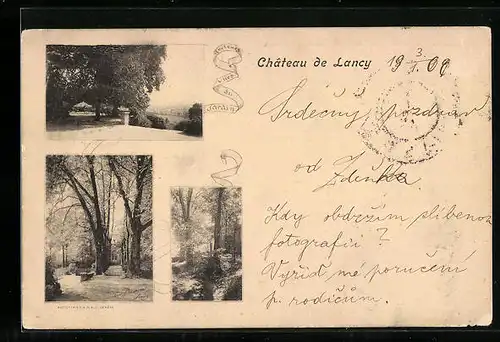 Château de Lancy 19 3/I 09
Srdečný pozdrav
od Zdeňka.
Kdy obdržím slibenou
fotografii?
Vyřiď mé poručení
p. rodičům.